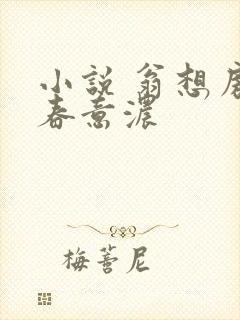 小说 翁想房
春意濃
梅薹尼